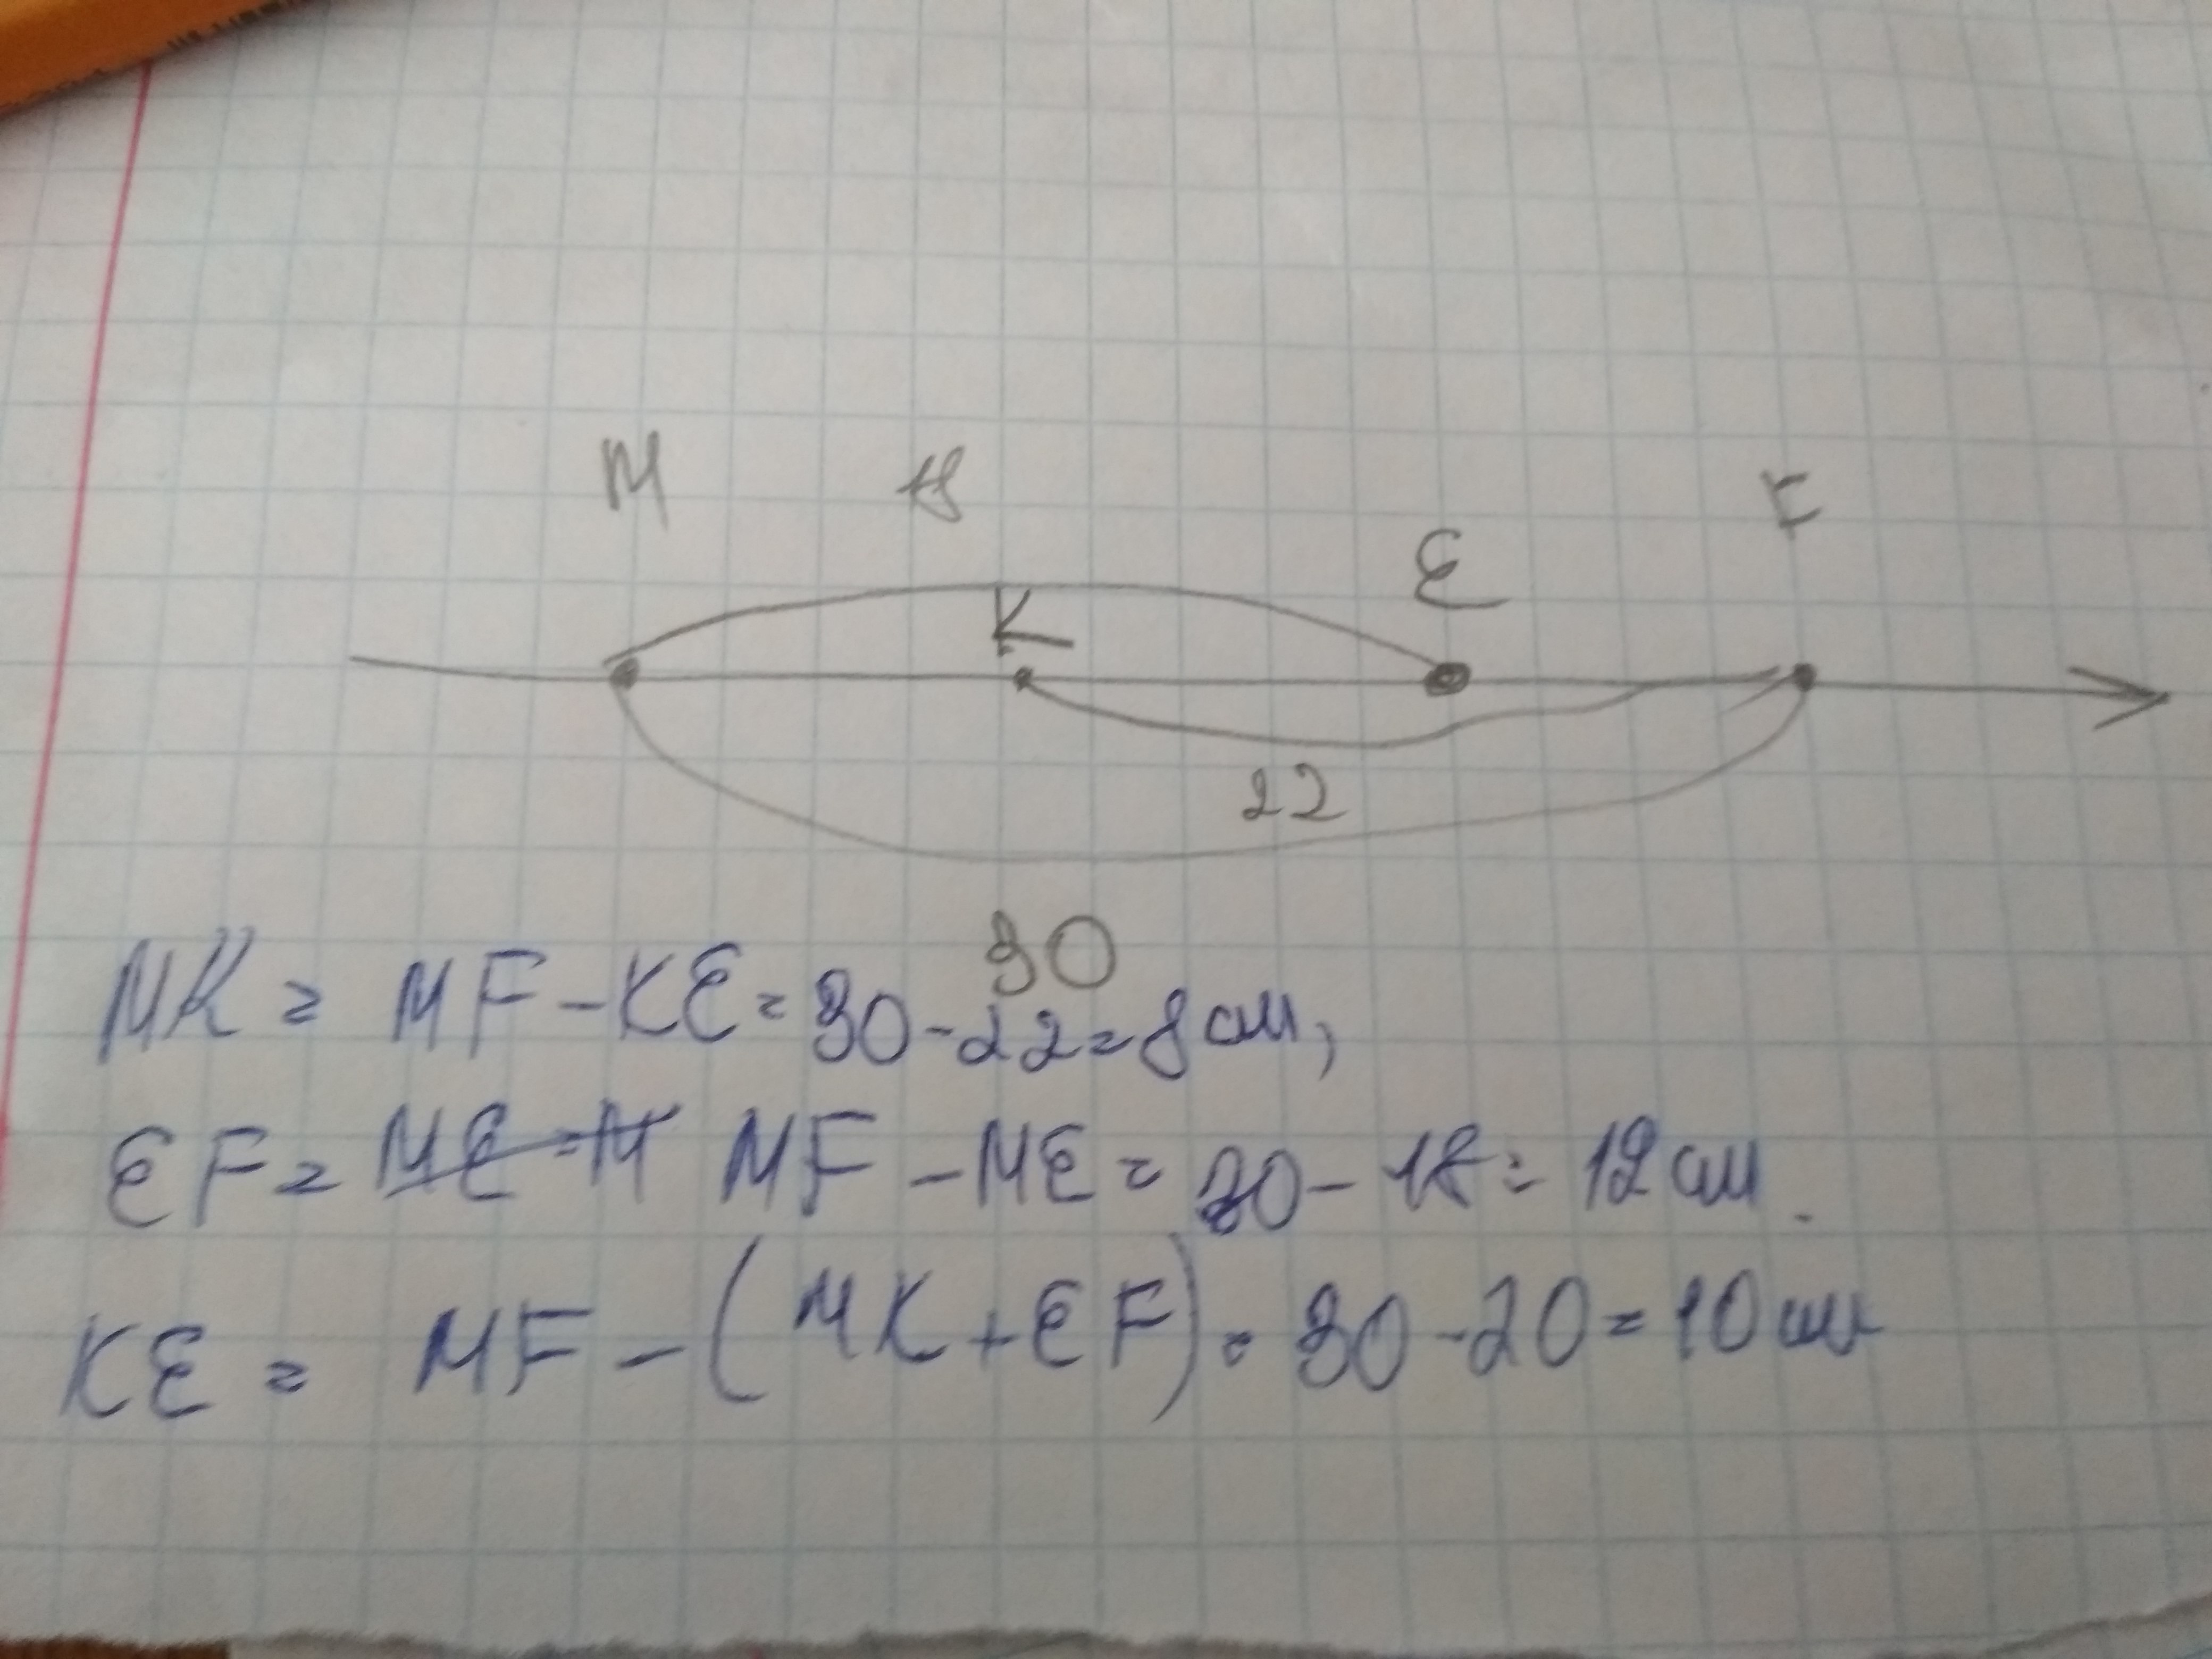 M 18 F
E
K
22
30
MK = MF - KE = 30 - 22 = 8 см,
EF = ME - M MF - ME = 30 - 18 = 12 см.
KE = MF - (MK + EF) = 30 - 20 = 10 см